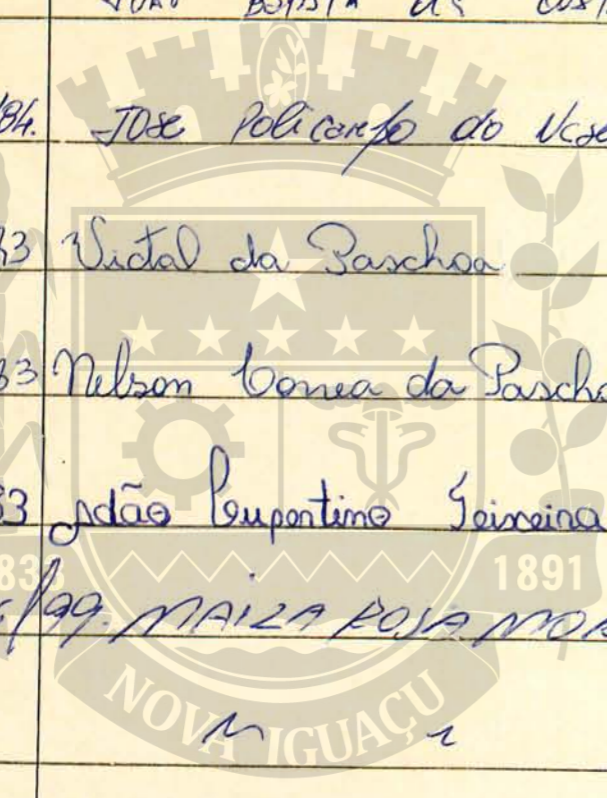 João Batista da Costa
/84. José Policarpo do Nasc
83 Victal da Paschoa
83 Nelson Correa da Pascho
83 Adão Cupertino Teixeira
1833 1891
/99. MAIZA ROSA MOR
NOVA IGUAÇU